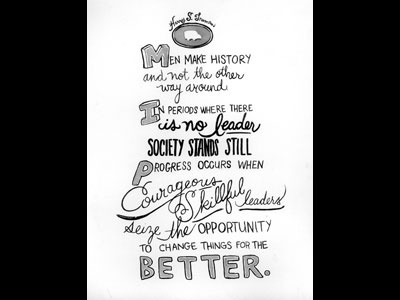 Harry S. Truman
MEN MAKE HISTORY
and not the other
way around
IN PERIODS WHERE THERE
is no leader
SOCIETY STANDS STILL
PROGRESS OCCURS WHEN
Courageous
& Skillful leaders
seize the OPPORTUNITY
TO CHANGE THINGS FOR THE
BETTER.